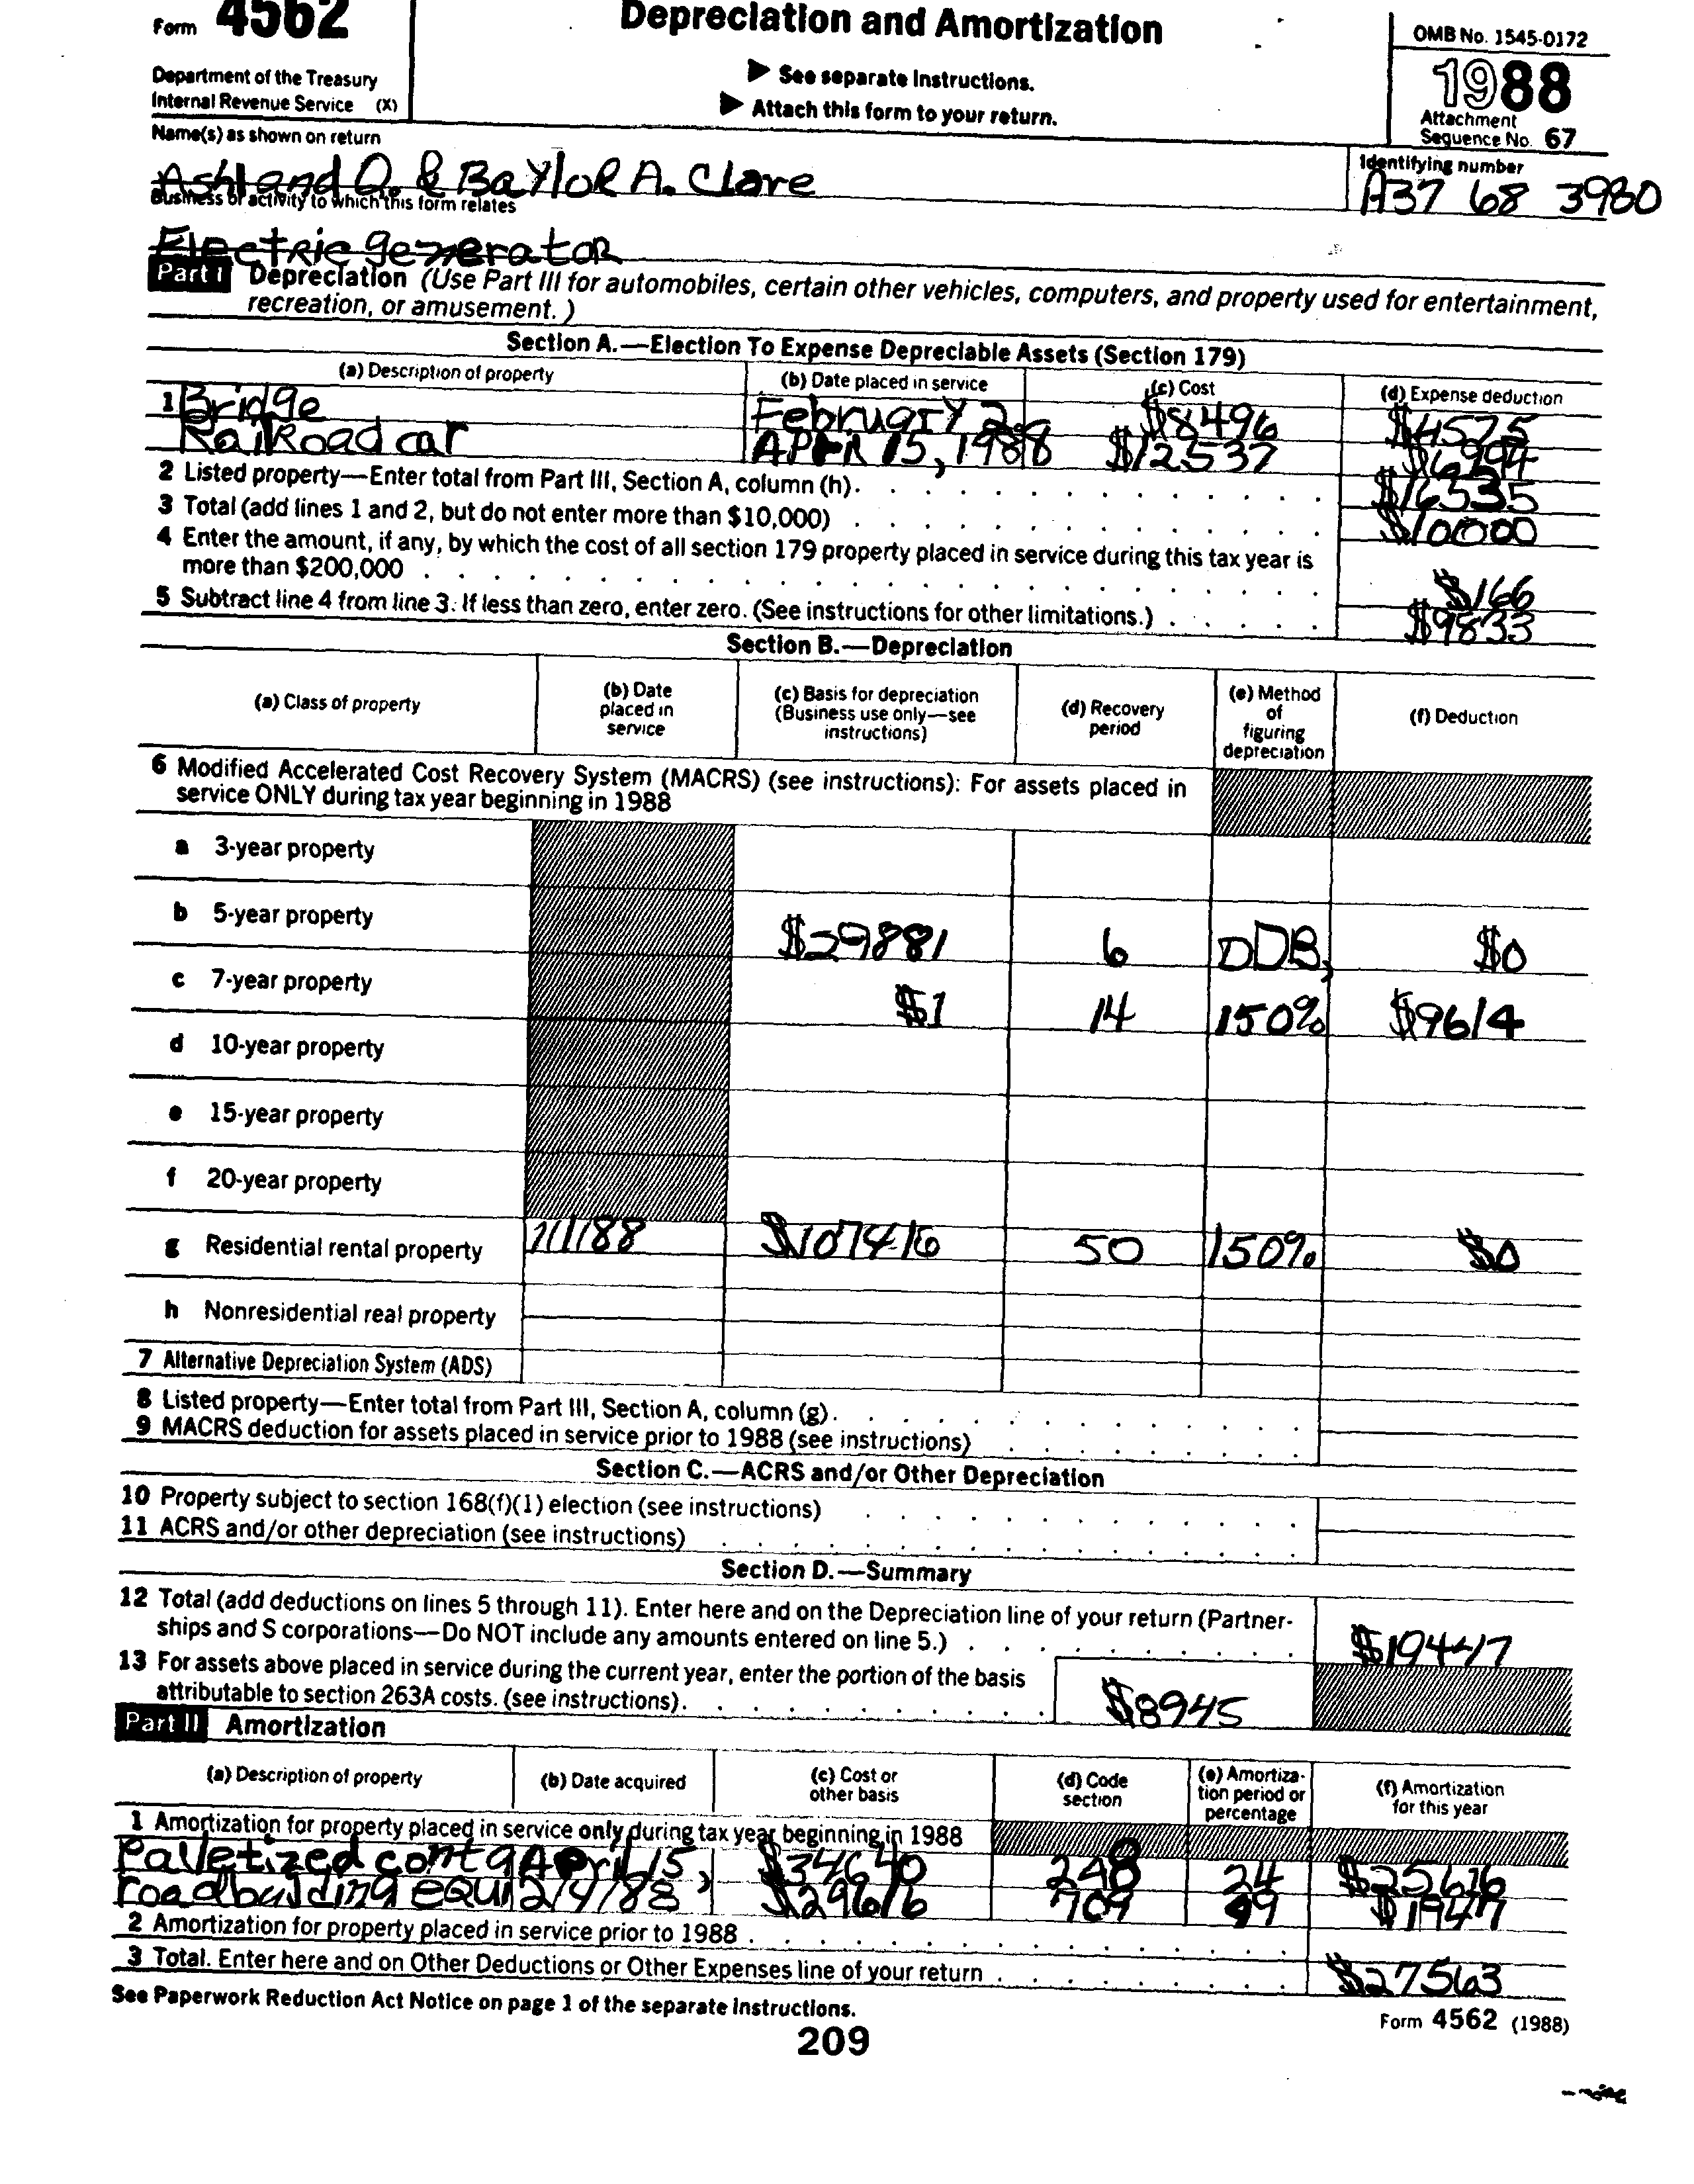 Form 4562
Depreciation and Amortization
OMB No. 1545-0172
Department of the Treasury
Internal Revenue Service (X)
▶ See separate Instructions.
▶ Attach this form to your return.
1988
Attachment
Sequence No. 67
Name(s) as shown on return
Identifying number
Ashland O. & Baylor A. Clare
A37 68 3980
Business or activity to which this form relates
Electric generator
Part I Depreciation (Use Part III for automobiles, certain other vehicles, computers, and property used for entertainment,
recreation, or amusement.)
Section A.—Election To Expense Depreciable Assets (Section 179)
(a) Description of property (b) Date placed in service (c) Cost (d) Expense deduction
1 Bridge February $8496 $4575
Railroad car April 15, 1988 $12537
2 Listed property—Enter total from Part III, Section A, column (h). $16535
3 Total (add lines 1 and 2, but do not enter more than $10,000) $10000
4 Enter the amount, if any, by which the cost of all section 179 property placed in service during this tax year is
more than $200,000 $166
5 Subtract line 4 from line 3. If less than zero, enter zero. (See instructions for other limitations.) $9833
Section B.—Depreciation
(a) Class of property (b) Date placed in service (c) Basis for depreciation (Business use only—see instructions) (d) Recovery period (e) Method of figuring depreciation (f) Deduction
6 Modified Accelerated Cost Recovery System (MACRS) (see instructions): For assets placed in
service ONLY during tax year beginning in 1988
a 3-year property
b 5-year property $29881 6 DDB, $0
c 7-year property $1 14 150% $9614
d 10-year property
e 15-year property
f 20-year property
g Residential rental property $107416 50 150% $0
h Nonresidential real property
7 Alternative Depreciation System (ADS)
8 Listed property—Enter total from Part III, Section A, column (g).
9 MACRS deduction for assets placed in service prior to 1988 (see instructions)
Section C.—ACRS and/or Other Depreciation
10 Property subject to section 168(f)(1) election (see instructions)
11 ACRS and/or other depreciation (see instructions)
Section D.—Summary
12 Total (add deductions on lines 5 through 11). Enter here and on the Depreciation line of your return (Partner-
ships and S corporations—Do NOT include any amounts entered on line 5.) $19447
13 For assets above placed in service during the current year, enter the portion of the basis
attributable to section 263A costs. (see instructions). $8945
Part II Amortization
(a) Description of property (b) Date acquired (c) Cost or other basis (d) Code section (e) Amortiza-tion period or percentage (f) Amortization for this year
1 Amortization for property placed in service only during tax year beginning in 1988
Palletized conta April 15, $34640 248 24 $25616
roadbuilding equi 2/4/88 $29616 709 49 $1947
2 Amortization for property placed in service prior to 1988
3 Total. Enter here and on Other Deductions or Other Expenses line of your return $27563
See Paperwork Reduction Act Notice on page 1 of the separate instructions.
Form 4562 (1988)
209